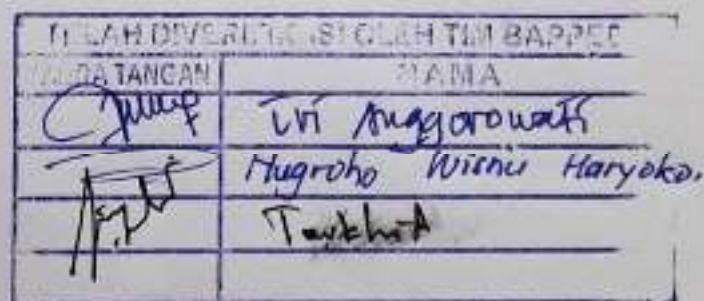 TELAH DIVERIFIKASI OLEH TIM BAPPED
TANDA TANGAN NAMA
Tri Anggorowati
Nugroho Wisnu Haryoko.